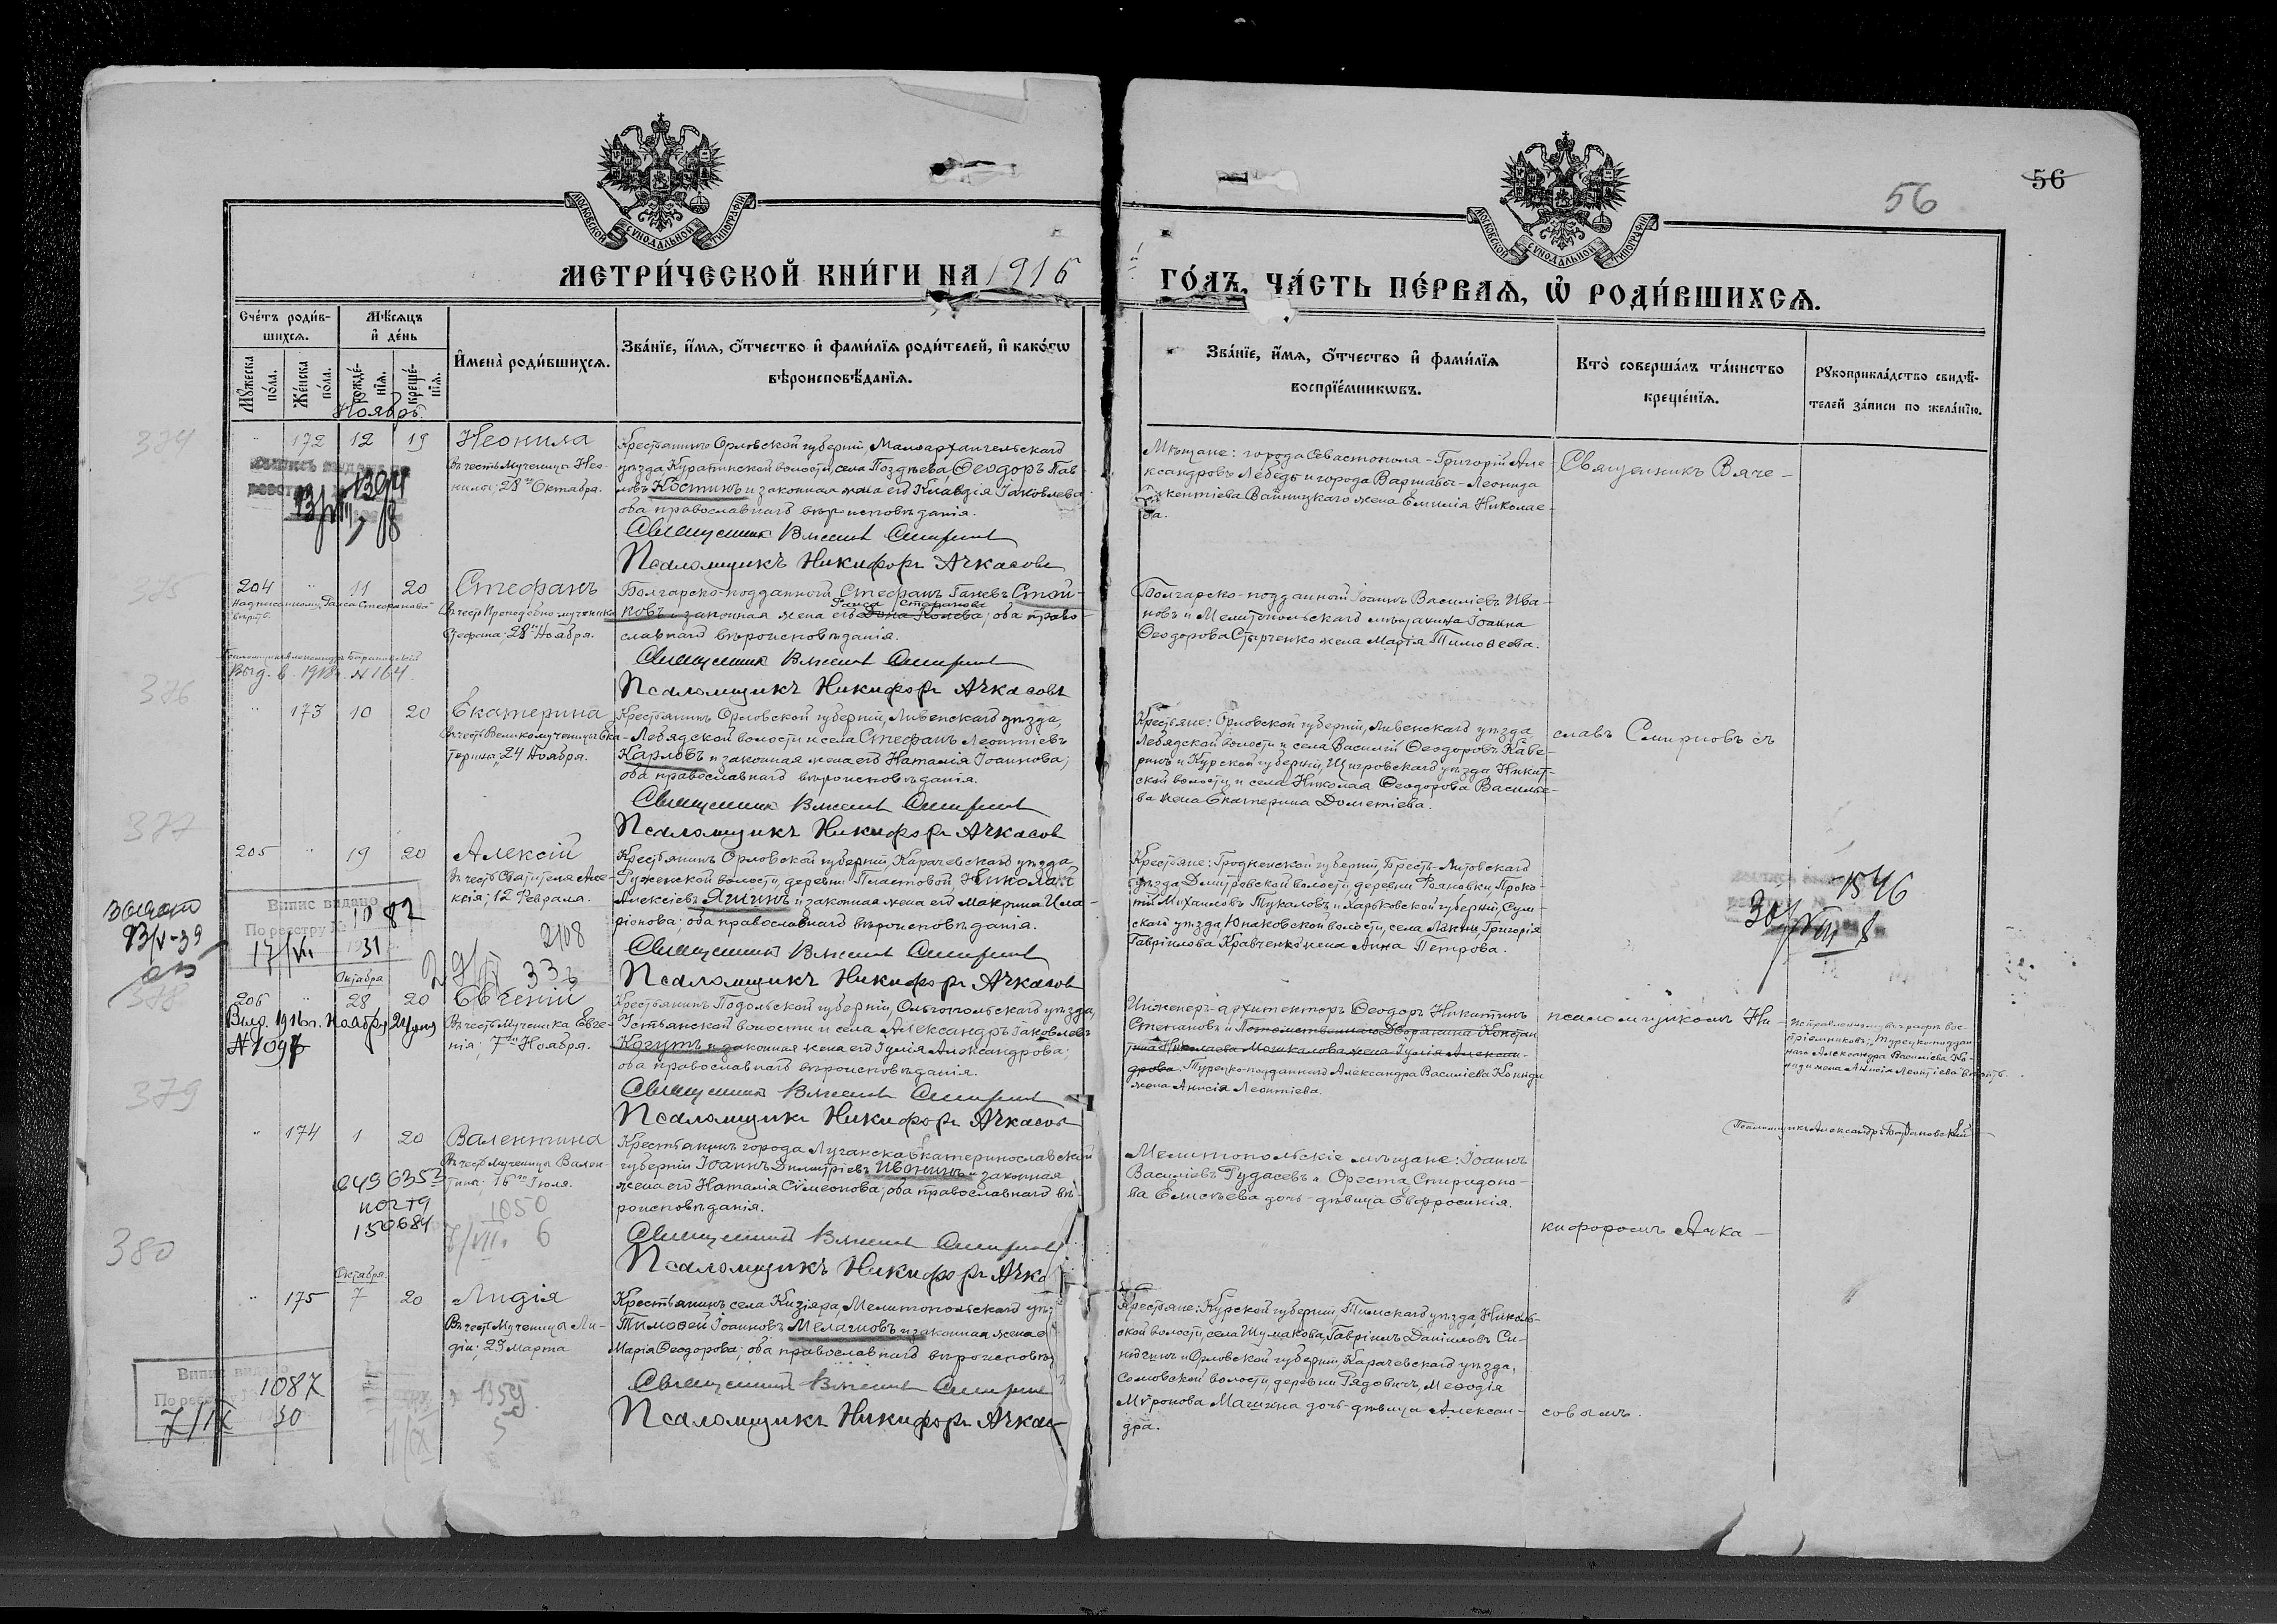 56
56
МОСКОВСКОЙ СУНОДАЛЬНОЙ ТИПОГРАФІИ
МОСКОВСКОЙ СУНОДАЛЬНОЙ ТИПОГРАФІИ
МЕТРИ́ЧЕСКОЙ КНИ́ГИ НА 1916
ГО́ДЪ, ЧА́СТЬ ПЕ́РВАѦ, Ѡ҆ РОДИ́ВШИХСѦ.
Сче́тъ роди́в-
шихсѧ.
Мѣ́сѧцъ
и҆ де́нь
Мꙋ́жеска по́ла.
Же́нска по́ла.
рожде́-нїѧ.
креще́-нїѧ.
И҆мена̀ роди́вшихсѧ.
Зва́нїе, и҆́мѧ, ѻ҆́тчество и҆ фами́лїѧ роди́телей, и҆ како́гѡ
вѣроисповѣ́данїѧ.
Зва́нїе, и҆́мѧ, ѻ҆́тчество и҆ фами́лїѧ
воспрїе́мникѡвъ.
Кто̀ соверша́лъ та́инство
креще́нїѧ.
Рꙋкоприкла́дство свидѣ́-
телей за́писи по жела́нїю.
Ноябрь.
374
" 172 12 19 Неонила
Въ честь Мученицы Нео-
нилы; 28го Октября.
Крестьянинъ Орловской губерніи, Малоархангельскаго
уѣзда, Куракинской волости, села Позднѣева, Ѳеодоръ Пав-
ловъ Костинъ и законная жена его Клавдія Іаковлева;
оба православнаго вѣроисповѣданія.
Священникъ Вячеславъ Смирновъ
Псаломщикъ Никифоръ Ачкасовъ
Мѣщане: города Севастополя - Григорій Але-
ксандровъ Лебедь и города Варшавы - Леонида
Викентіева Вайницкаго жена Емилія Николае-
ва.
Священникъ Вяче-
1394
375
204 " 11 20 Стефанъ
Въ честь Преподобно мученика
Стефана; 28го Ноября.
Надписанному Раиса Стефановой
вѣрить.
Псаломщикъ Александръ Барановскій
Выд. в 1918 г. № 164.
Болгарско-подданный Стефанъ Ганевъ Стой-
Раиса Стефанова
новъ и законная жена его Дона Конева; оба право-
славнаго вѣроисповѣданія.
Священникъ Вячеславъ Смирновъ
Псаломщикъ Никифоръ Ачкасовъ
Болгарско-подданный Іоаннъ Василіевъ Ива-
новъ и Мелитопольскаго мѣщанина Іоанна
Ѳеодорова Стырченко жена Марія Тимоѳеева.
376
" 173 10 20 Екатерина
Въ честь Великомученицы Ека-
терины; 24 Ноября.
Крестьянинъ Орловской губерніи, Ливенскаго уѣзда,
Лебядской волости и села Стефанъ Леонтіевъ
Карловъ и законная жена его Наталія Іоаннова;
оба православнаго вѣроисповѣданія.
Священникъ Вячеславъ Смирновъ
Псаломщикъ Никифоръ Ачкасов
Крестьяне: Орловской губерніи, Ливенскаго уѣзда,
Лебядской волости и села Василій Ѳеодоровъ Каве-
ринъ и Курской губерніи, Щигровскаго уѣзда, Никит-
ской волости и села Николая Ѳеодорова Василье-
ва жена Екатерина Дометіева.
славъ Смирновъ съ
377
205 " 19 20 Алексій
Въ честь Святителя Але-
ксія; 12 Февраля.
Крестьянинъ Орловской губерніи, Карачевскаго уѣзда,
Руженской волости, деревни Пластовой, Николай
Алексіевъ Ягичинъ и законная жена его Макрина Ила-
ріонова; оба православнаго вѣроисповѣданія.
Священникъ Вячеславъ Смирновъ
Псаломщикъ Никифоръ Ачкасов
Крестьяне: Гродненской губерніи, Брестъ-Литовскаго
уѣзда, Дмитровской волости, деревни Фояновки, Проко-
пій Михаиловъ Тукаловъ и Харьковской губерніи, Сум-
скаго уѣзда, Юнаковской волости, села Локни, Григорія
Гавріилова Кравченко жена Анна Петрова.
Випис видано
По реєстру № 1082
17/VII 1931
2108
1546
30/VIII 8
378
Октября
206 " 28 20 Евгеній
Въ честь Мученика Евге-
нія; 7го Ноября.
Выд. 1916 г. Ноября 24 дня
№ 1097
Крестьянинъ Подольской губерніи, Ольгопольскаго уѣзда,
Устьянской волости и села Александръ Іаковлевъ
Когутъ и законная жена его Іулія Александрова;
оба православнаго вѣроисповѣданія.
Священникъ Вячеславъ Смирновъ
Псаломщикъ Никифоръ Ачкасов
Инженеръ-архитекторъ Ѳеодоръ Никитинъ
Степановъ и Потомственнаго Дворянина Констан-
тина Николаева Мошкалова жена Іулія Алексан-
дрова. Турецко-подданнаго Александра Василіева Кониди
жена Анисія Леонтіева.
псаломщикомъ Ни-
Исправленному въ графѣ вос-
пріемниковъ: "Турецкоподдан-
наго Александра Василіева Ко-
ниди жена Анисія Леонтіева" вѣрить.
Псаломщикъ Александръ Барановскій
379
" 174 1 20 Валентина
Въ честь Мученицы Вален-
тины; 16го Іюля.
1050
Крестьянинъ города Луганска Екатеринославской
губерніи Іоаннъ Димитріевъ Ивонинъ и законная
жена его Наталія Сѵмеонова; оба православнаго вѣ-
роисповѣданія.
Священникъ Вячеславъ Смирновъ
Псаломщикъ Никифоръ Ачка
Мелитопольскіе мѣщане: Іоаннъ
Василіевъ Рудасевъ и Ореста Спиридоно-
ва Елисѣева дочь-дѣвица Евфросинія.
кифоромъ Ачка-
150684
380
Октября.
" 175 7 20 Лидія
Въ честь Мученицы Ли-
діи; 23 Марта
Крестьянинъ села Кизіяра, Мелитопольскаго уѣз
Тимоѳей Іоанновъ Мелашовъ и законная жена е
Марія Ѳеодорова; оба православнаго вѣроисповѣ
Священникъ Вячеславъ Смирнов
Псаломщикъ Никифоръ Ачкас
Крестьяне: Курской губерніи, Тимскаго уѣзда, Николь-
ской волости, села Шумакова, Гавріилъ Даніиловъ Си-
нюгинъ и Орловской губерніи, Карачевскаго уѣзда,
Сомовской волости, деревни Рядовичъ, Меѳодія
Мѵронова Магинна дочь-дѣвица Алексан-
дра.
совымъ.
Випис видано
По реєстру 1087
7/IX 30
1359